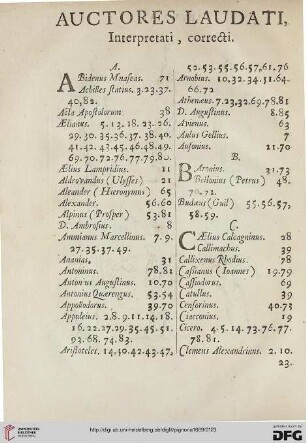 AUCTORES LAUDATI,
Interpretati, correcti.
A.
ABidenus Mnaseas. 71
Achilles statius. 3.23.37.
40,82.
Acta Apostolorum 38
Ælianus. 5.13.18.23.26.
29.30.35.36.37.38.40.
41.42.43.45.46.48.49.
69.70.72.76.77.79.80.
Ælius Lampridius. 11
Aldrovandus (Ulysses) 21
Aleander (Hieronymus) 65
Alexander. 56.60
Alpinus (Prosper) 53.81
D. Ambrosius. 8
Ammianus Marcellinus. 7.9.
27.35.37.49.
Ananias, 31
Antoninus. 78.81
Antonius Augustinus. 10.70
Antonius Quærengus. 53.54
Appollodorus. 39.70
Appuleius. 2.8.9.11.14.18.
16.22.27.29.35.45.51.
93.68.74.83.
Aristoteles. 14.30.42.43.47,
52.53.55.56.57,61.76
Arnobius. 10,32.34.51.64.
66.72
Athenæus. 7.23,32.69.78.81
D. Augustinus. 8.85
Avienus. 63
Aulus Gellius. 7
Ausonius. 21.70
B.
BArsaius. 31.73
Bellonius (Petrus) 48.
70.71.
Budæus (Guil) 55.56.57,
58.59.
C.
CÆlius Calcagninus. 28
Callimachus. 39
Callixenus Rhodius. 78
Cassianus (Ioannes) 19.79
Cassiodorus. 69
Catullus. 39
Censorinus. 40.73
Ciaconius. 19
Cicero. 4.5.14.73.76.77.
78.81.
Clemens Alexandrinus. 2.10.
23.
http://digi.ub.uni-heidelberg.de/diglit/pignoria1669/0123
UNIVERSITÄTS-
BIBLIOTHEK
HEIDELBERG
gefördert durch die
DFG